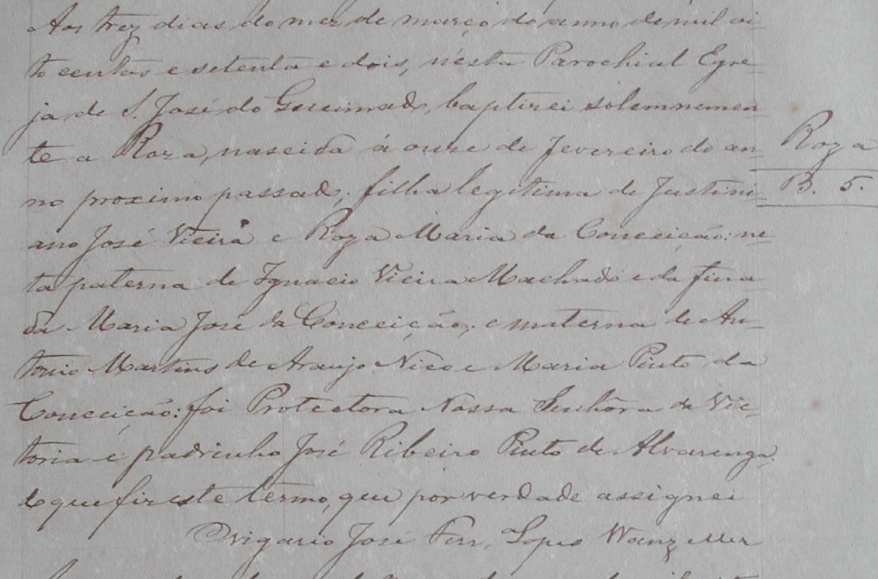 Aos trez dias do mez de março do anno de mil oi-
to centos e setenta e dois, nésta Parochial Egre-
ja de S. José do Queimado, baptizei solemnemen-
te a Roza, nascida á onse de Fevereiro do an-
no proximo passado; filha legitima de Justini-
ano José Vieira e Roza Maria da Conceição: ne-
ta paterna de Ignacio Vieira Machado e da fina-
da Maria José da Conceição, e materna de An-
tonio Martins de Araujo Nico e Maria Pinto da
Conceição: foi Protectora Nossa Senhôra da Vic-
toria e padrinho José Ribeiro Pinto de Alvarenga,
do que fiz este termo, que por verdade assignei
O vigario José Ferr. Lopes Wanzeller
Roza
B. 5.